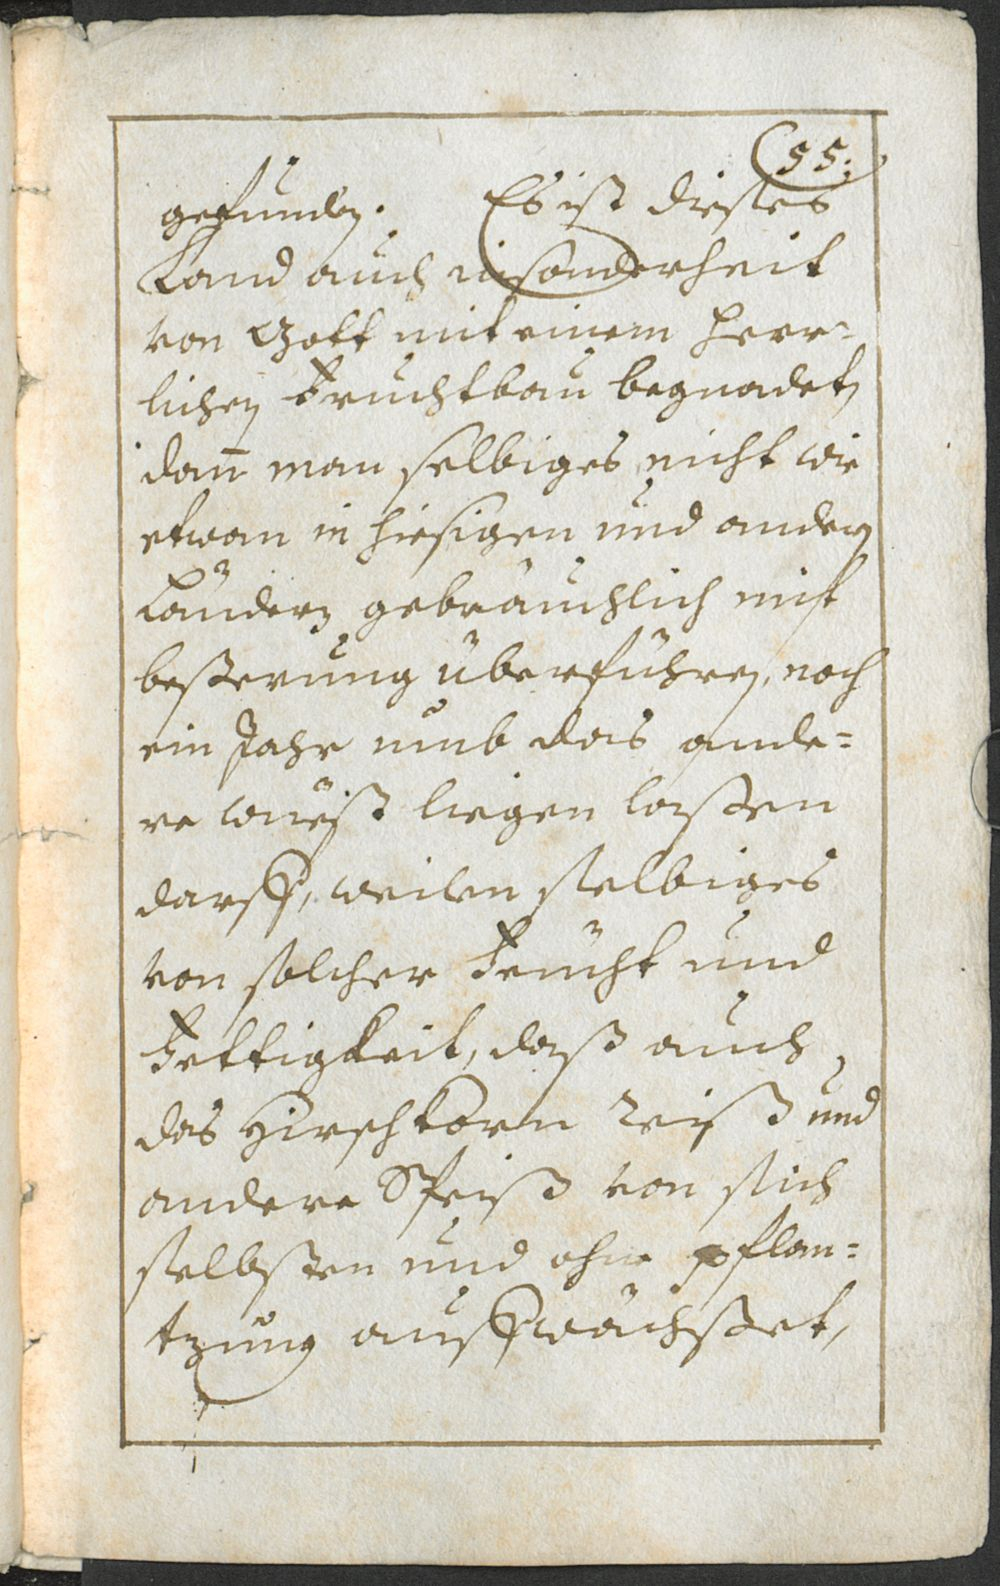 (55.
gefunden. Es ist dieses
Land auch insonderheit
von Gott mit einem herr=
lichen Fruchtbau begnadet,
dañ man selbiges nicht wie
etwan in hiesigen und andern
Ländern gebräuchlich mist
beßerung überführen, noch
ein Jahr umb das ande=
re wüest liegen laßen
darff, weilen selbiges
von solcher Feücht und
Fettigkeit, daß auch
das Hirschkorn Reiß und
andere Speiß von sich
selbsten und ohne pflan=
tzung auffwächset,